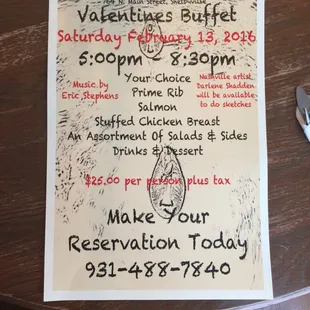 N. Main Street, Shelbyville
Valentines Buffet
Saturday February 13, 2016
5:00pm - 8:30pm
Music by
Eric Stephens
Your Choice
Prime Rib
Salmon
Stuffed Chicken Breast
An Assortment Of Salads & Sides
Drinks & Dessert
Nashville artist
Darlene Shadden
will be available
to do sketches
$25.00 per person plus tax
Make Your
Reservation Today
931-488-7840